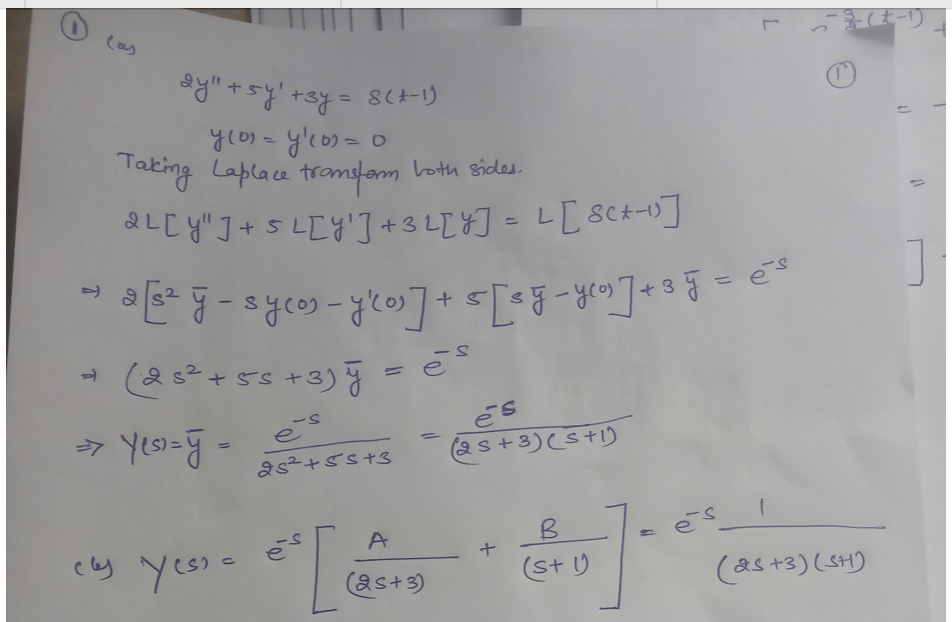 ① (a)
2y'' + 5y' + 3y = δ(t-1)
y(0) = y'(0) = 0
Taking Laplace transform both sides.
2L[y''] + 5L[y'] + 3L[y] = L[δ(t-1)]
⇒ 2[s² ȳ - s y(0) - y'(0)] + 5[s ȳ - y(0)] + 3 ȳ = e^-s
⇒ (2s² + 5s + 3) ȳ = e^-s
⇒ Y(s) = ȳ = e^-s / (2s² + 5s + 3) = e^-s / ((2s+3)(s+1))
(b) Y(s) = e^-s [A / (2s+3) + B / (s+1)] = e^-s 1 / ((2s+3)(s+1))
①
-3/2(t-1) +
= -
=
]